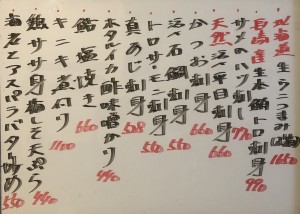 北海道 生うにつまみ 1650
長崎産 生本鮪トロ刺身 990
サメのハツ刺し 770
天然 活〆平目刺身 660
かつお刺身 550
活〆石鯛刺身 550
トロサーモン刺身 550
真あじ刺身 508
本タルイカ酢味噌がけ 440
鮎塩焼き 660
キンキ煮付け 1100
鶏ササ身梅しそ天ぷら 440
海老とアスパラバター炒め 550